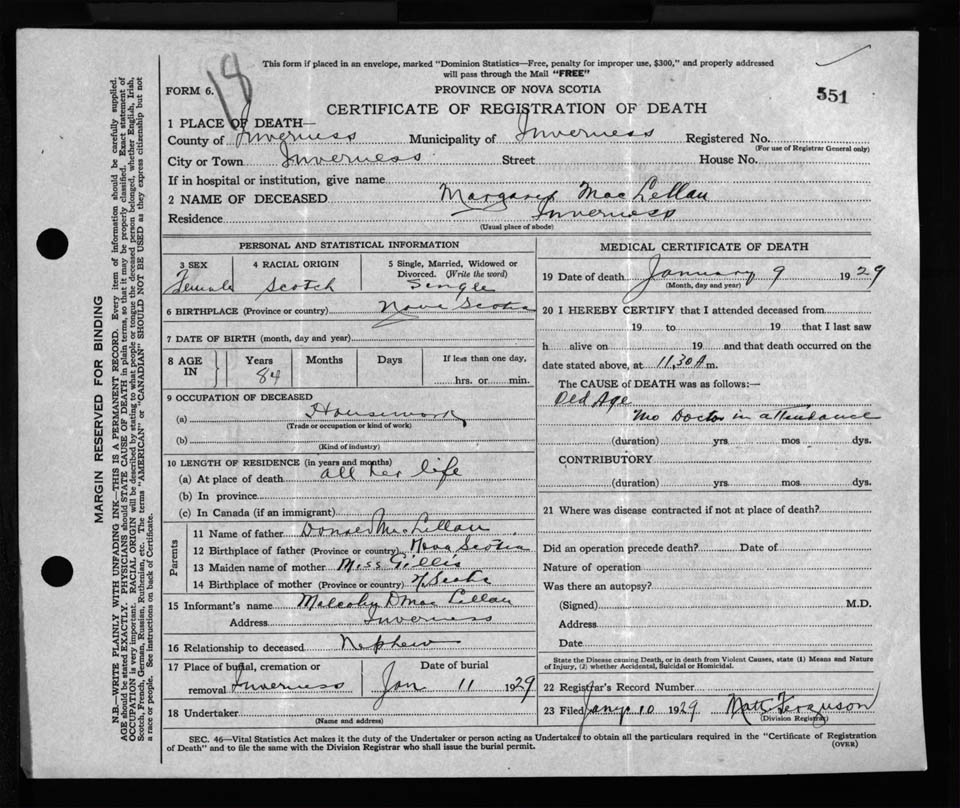 18
This form if placed in an envelope, marked "Dominion Statistics—Free, penalty for improper use, $300," and properly addressed
will pass through the Mail "FREE"
FORM 6.
PROVINCE OF NOVA SCOTIA
551
CERTIFICATE OF REGISTRATION OF DEATH
1 PLACE OF DEATH—
County of Inverness Municipality of Inverness Registered No.
(For use of Registrar General only)
City or Town Inverness Street House No.
If in hospital or institution, give name
2 NAME OF DECEASED Margaret MacLellan
Residence Inverness
(Usual place of abode)
PERSONAL AND STATISTICAL INFORMATION
3 SEX 4 RACIAL ORIGIN 5 Single, Married, Widowed or
Divorced. (Write the word)
Female Scotch Single
6 BIRTHPLACE (Province or country) Nova Scotia
7 DATE OF BIRTH (month, day and year)
8 AGE IN Years Months Days If less than one day,
84 hrs. or min.
9 OCCUPATION OF DECEASED
(a) Housework
(Trade or occupation or kind of work)
(b)
(Kind of industry)
10 LENGTH OF RESIDENCE (in years and months)
(a) At place of death all her life
(b) In province
(c) In Canada (if an immigrant)
Parents
11 Name of father Donald MacLellan
12 Birthplace of father (Province or country) Nova Scotia
13 Maiden name of mother Miss Gillis
14 Birthplace of mother (Province or country) N Scotia
15 Informant's name Malcolm D MacLellan
Address Inverness
16 Relationship to deceased Nephew
17 Place of burial, cremation or Date of burial
removal Inverness Jan 11 1929
18 Undertaker
(Name and address)
MEDICAL CERTIFICATE OF DEATH
19 Date of death January 9 1929
(Month, day and year)
20 I HEREBY CERTIFY that I attended deceased from
19 to 19 that I last saw
h alive on 19 and that death occurred on the
date stated above, at 11.30 A m.
The CAUSE of DEATH was as follows:—
Old Age
No Doctor in attendance
(duration) yrs mos dys.
CONTRIBUTORY
(duration) yrs mos dys.
21 Where was disease contracted if not at place of death?
Did an operation precede death? Date of
Nature of operation
Was there an autopsy?
(Signed) M.D.
Address
Date
State the Disease causing Death, or in death from Violent Causes, state (1) Means and Nature
of Injury, (2) whether Accidental, Suicidal or Homicidal.
22 Registrar's Record Number
23 Filed Jany 10 1929 Matt Ferguson
(Division Registrar)
SEC. 46—Vital Statistics Act makes it the duty of the Undertaker or person acting as Undertaker to obtain all the particulars required in the "Certificate of Registration
of Death" and to file the same with the Division Registrar who shall issue the burial permit.
(OVER)
MARGIN RESERVED FOR BINDING
N.B.—WRITE PLAINLY WITH UNFADING INK—THIS IS A PERMANENT RECORD. Every item of information should be carefully supplied.
AGE should be stated EXACTLY. PHYSICIANS should STATE CAUSE OF DEATH in plain terms, so that it may be properly classified. Exact statement of
OCCUPATION is very important. RACIAL ORIGIN will be described by stating to what people or tongue the deceased person belonged, whether English, Irish,
Scotch, French, German, Russian, Ruthenian, etc. The terms "AMERICAN" or "CANADIAN" SHOULD NOT BE USED as they express citizenship but not
a race or people. See instructions on back of Certificate.